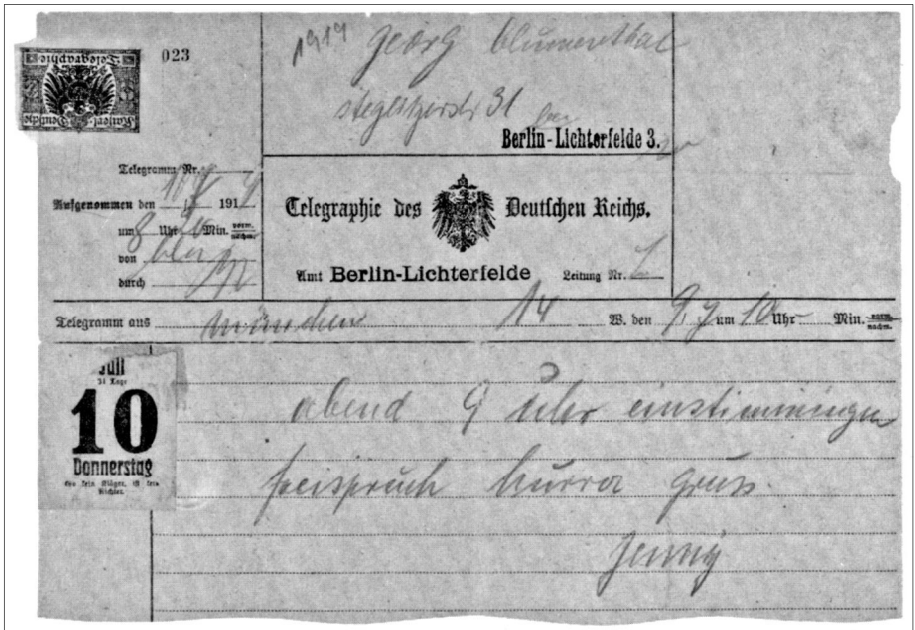 1919 Georg Blumenthal
023
steglitzerstr 31
Berlin-Lichterfelde 3.
Kaiserl. Deutsche
Telegraphie
Telegramm Nr.
Aufgenommen den 10/7 1919
um 8 Uhr Min. vorm. nachm.
von bln
durch
Telegraphie des Deutschen Reichs.
Amt Berlin-Lichterfelde Leitung Nr.
Telegramm aus münchen 14 W. den 9. 7 um 10 Uhr Min. vorm. nachm.
Juli
31 Tage
10
Donnerstag
Wo kein Kläger, ist kein
Richter.
abend 9 uhr einstimmingen
freispruch hurra gruss.
Jenny